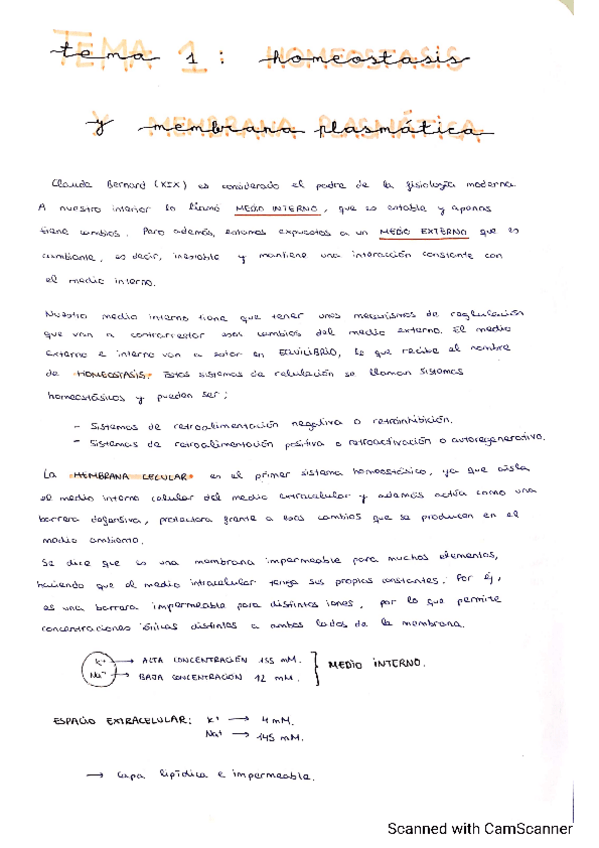 TEMA 1: HOMEOSTASIS
tema 1: homeostasis
Y MEMBRANA PLASMÁTICA
y membrana plasmática
Claude Bernard (XIX) es considerado el padre de la fisiología moderna.
A nuestro interior lo llamó MEDIO INTERNO, que es estable y apenas
tiene cambios. Pero además, estamos expuestos a un MEDIO EXTERNO que es
cambiante, es decir, inestable y mantiene una interacción constante con
el medio interno.
Nuestro medio interno tiene que tener unos mecanismos de reglulación
que van a contrarrestar esos cambios del medio externo. El medio
externo e interno van a estar en EQUILIBRIO, lo que recibe el nombre
de HOMEOSTASIS. Estos sistemas de relulación se llaman sistemas
homeostásicos y pueden ser;
- Sistemas de retroalimentación negativa o retroinhibición.
- Sistemas de retroalimentación positiva o retroactivación o autoregenerativo.
La MEMBRANA CELULAR es el primer sistema homeostásico, ya que aisla
el medio interno celular del medio extracelular y además actúa como una
barrera defensiva, protectora frente a esos cambios que se producen en el
medio ambiente.
Se dice que es una membrana impermeable para muchos elementos,
haciendo que el medio intracelular tenga sus propias constantes. Por ej,
es una barrera impermeable para distintos iones, por lo que permite
concentraciones iónicas distintas a ambos lados de la membrana.
K+ → ALTA CONCENTRACIÓN 155 mM.
Na+ → BAJA CONCENTRACIÓN 12 mM.
MEDIO INTERNO.
ESPACIO EXTRACELULAR: K+ → 4 mM.
Na+ → 145 mM.
→ Capa lipídica e impermeable.
Scanned with CamScanner